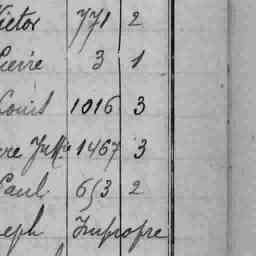 Victor 771 2
Pierre 3 1
Louis 1016 3
1467 3
Paul 653 2
eph Impropre